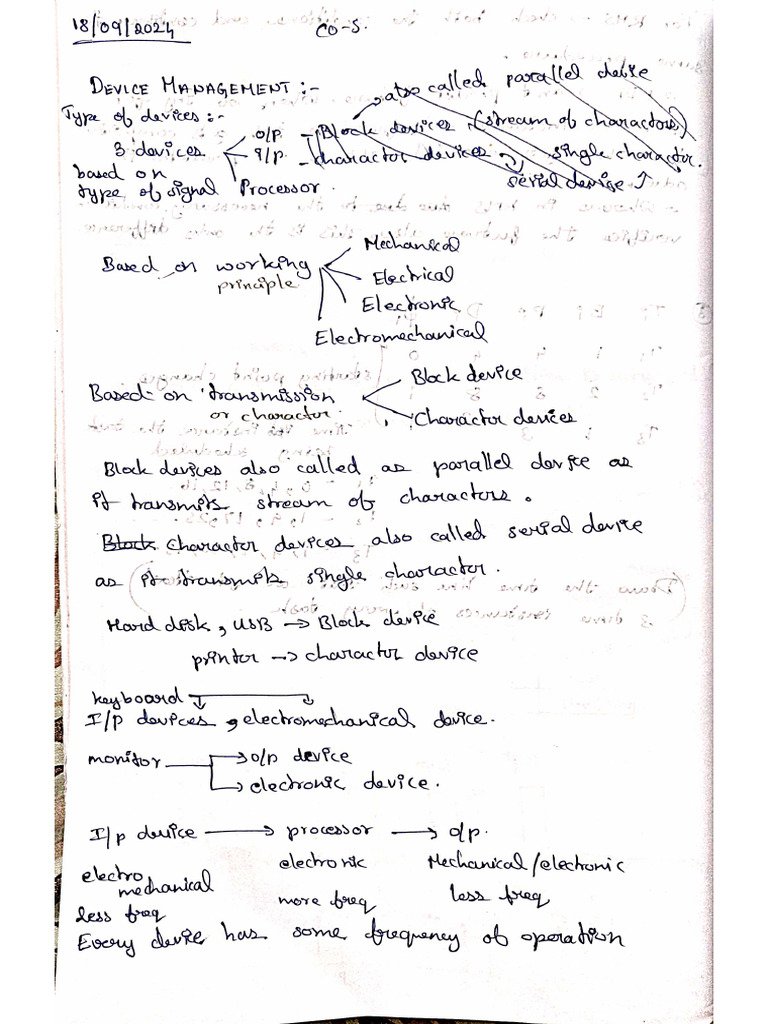 18/09/2024
CO-5.
DEVICE MANAGEMENT :-
also called parallel devie
Type of devices :-
3 devices
o/p.
I/p.
Processor.
- Block devices (stream of charactors)
- charactor devices
single charactor.
serial device
based on
type of signal
Based on working
principle
Mechanical
Electrical
Electronic
Electromechanical
Based on transmission
or charactor.
Block device
Charactor devices
Block devices also called as parallel device as
it transmits stream of charactors.
Block charactor devices also called serial device
as it transmits single charactor.
Hard disk, USB → Block device
printor → charactor device
keyboard
I/p devices, electromechanical device.
monitor
→ o/p device
→ electronic device.
I/p device → processor → o/p.
electro mechanical
electronic
Mechanical/electronic
less freq
more freq
less freq
Every device has some frequency of operation